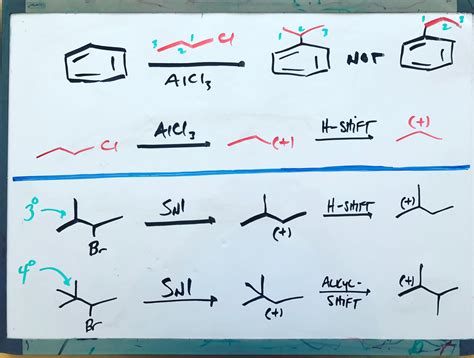 3 2 1 Cl
AlCl3
1 2 3
NOT
1 2 3
Cl
AlCl3
(+)
H-SHIFT
(+)
3°
Br
SN1
(+)
H-SHIFT
(+)
4°
Br
SN1
(+)
ALKYL-
SHIFT
(+)